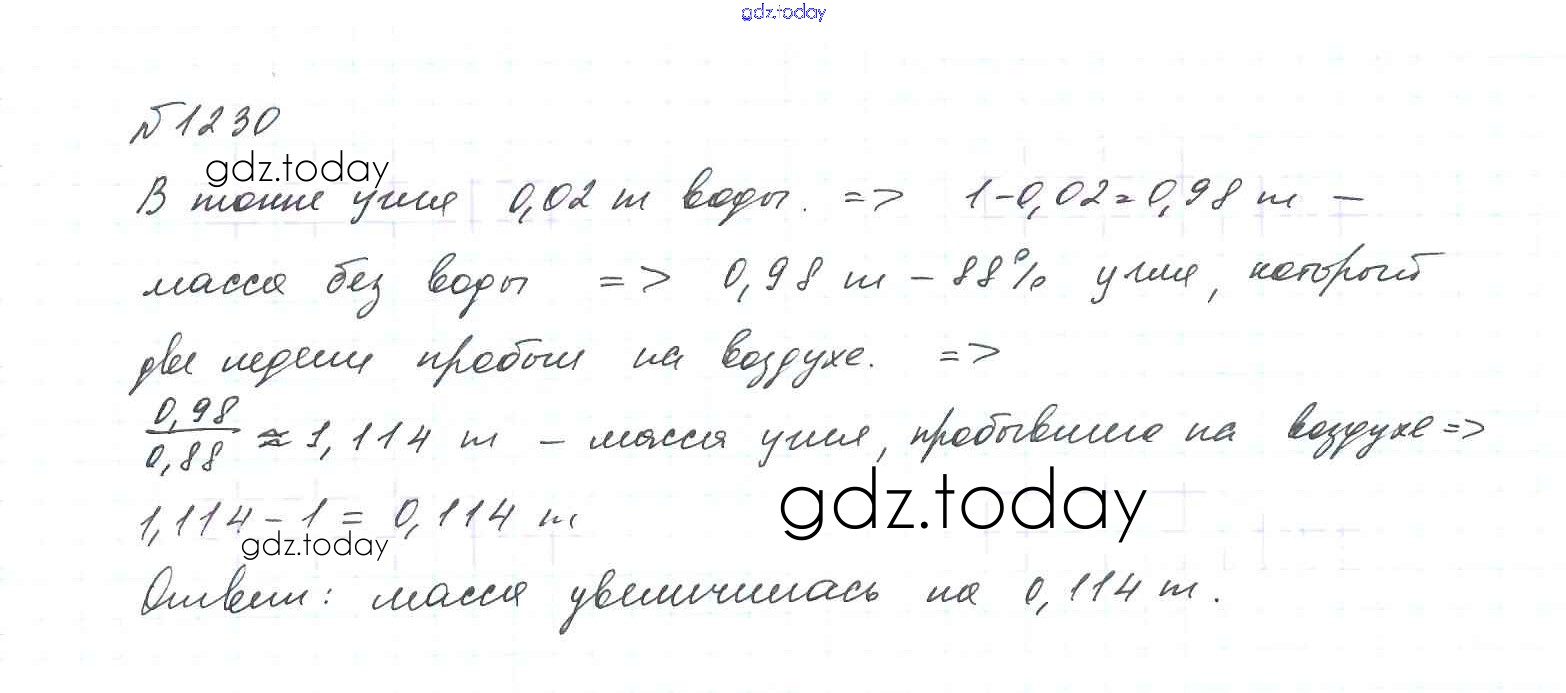 gdz.today
№1230
gdz.today
В тонне угля 0,02 т воды. => 1-0,02=0,98 т –
масса без воды => 0,98 т – 88% угля, который
две недели пробыл на воздухе. =>
0,98/0,88 ≈ 1,114 т – масса угля, пробывшего на воздухе =>
gdz.today
1,114 – 1 = 0,114 т
gdz.today
Ответ: масса увеличилась на 0,114 т.